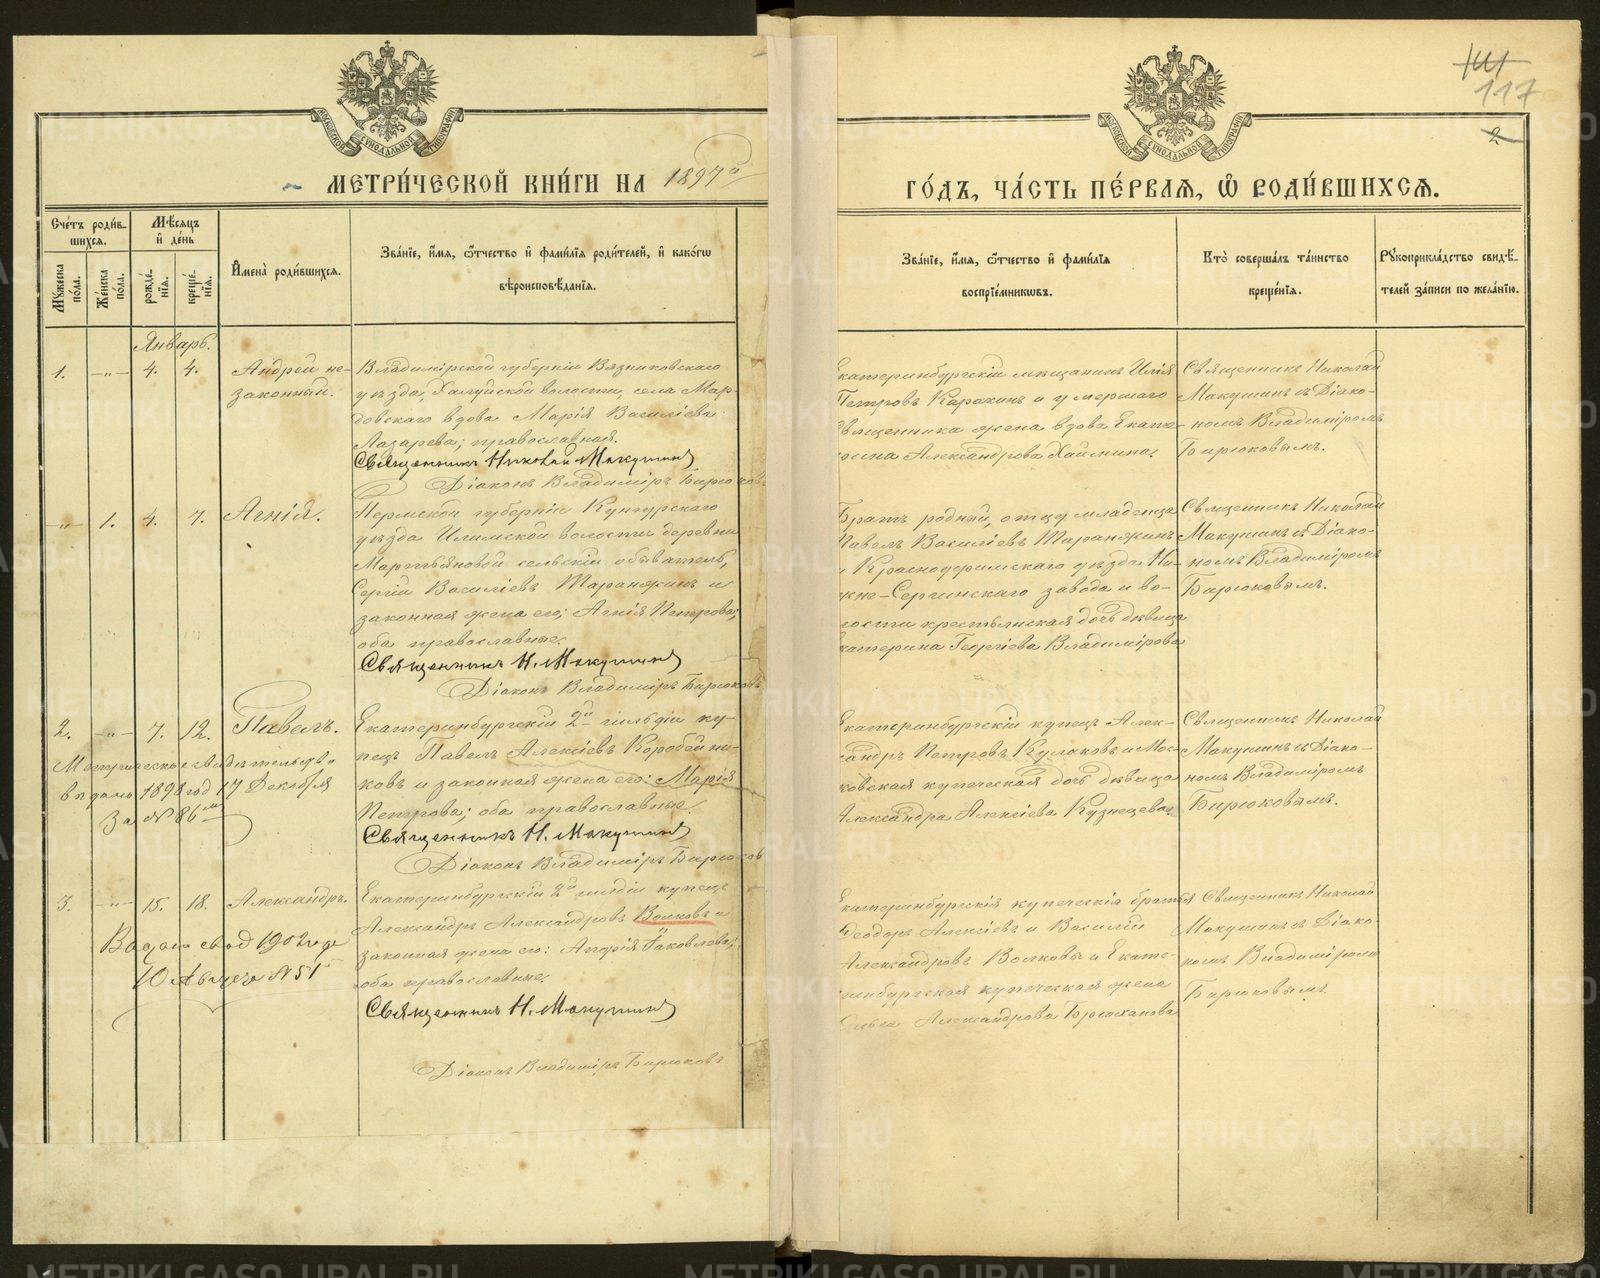 111
117
2.
МОСКОВСКОЙ СѴНОДАЛЬНОЙ ТИПОГРАФІИ
МОСКОВСКОЙ СѴНОДАЛЬНОЙ ТИПОГРАФІИ
МЕТРИ́ЧЕСКОЙ КНИ́ГИ НА 1897й
ГО́ДЪ, ЧА́СТЬ ПЕ́РВАЯ, Ѡ҆ РОДИ́ВШИХСЯ.
Сче́тъ роди́в-
шихся.
Мѣ́сяцъ
и҆ де́нь
Му́жеска по́ла.
Же́нска по́ла.
рожде́-
нїя.
креще́-
нїя.
И҆мена̀ роди́вшихся.
Зва́нїе, и҆́мя, ѻ҆́тчество и҆ фами́лїя роди́телей, и҆ како́гѡ
вѣроисповѣ́данїя.
Зва́нїе, и҆́мя, ѻ҆́тчество и҆ фами́лїя
воспрїе́мникѡвъ.
Кто̀ соверша́лъ та́инство
креще́нїя.
Рукоприкла́дство свидѣ́-
телей за́писи по жела́нїю.
Январь.
1. —„— 4. 4. Андрей не-
законный.
Владимірской губерніи Вязниковскаго
уѣзда, Холуйской волости, села Мар-
довскаго вдова Марія Василіева
Лазарева; православная.
Священникъ Николай Макушинъ
Діаконъ Владиміръ Бирюковъ
Екатеринбургскій мѣщанинъ Илія
Петровъ Каракинъ и умершаго
священника жена вдова Екате-
рина Александрова Хаймина.
Священникъ Николай
Макушинъ съ Діако-
номъ Владиміромъ
Бирюковымъ.
—„— 1. 4. 7. Агнія.
Пермской губерніи Кунгурскаго
уѣзда Илимской волости деревни
Мартьяновой сельскій обыватель,
Сергій Василіевъ Таранжинъ и
законная жена его; Агнія Петрова;
оба православные.
Священникъ Н. Макушинъ
Діаконъ Владиміръ Бирюковъ
Братъ родный, отцу младенца
Павелъ Василіевъ Таранжинъ
и Красноуфимскаго уѣзда Ни-
жне-Сергинскаго завода и во-
лости крестьянская дочь дѣвица
Екатерина Георгіева Владимірова
Священникъ Николай
Макушинъ съ Діако-
номъ Владиміромъ
Бирюковымъ.
2. —„— 7. 12. Павелъ.
Метрическое свидѣтельство
выдано 1898 год 17 Декабря
За № 86
Екатеринбургскій 2й гильдіи ку-
пецъ Павелъ Алексіевъ Коробейни-
ковъ и законная жена его: Марія
Петрова; оба православные.
Священникъ Н. Макушинъ
Діаконъ Владиміръ Бирюковъ
Екатеринбургскій купецъ Алек-
сандръ Петровъ Кулаковъ и Мос-
ковская купеческая дочь дѣвица
Александра Алексіева Кузнецева.
Священникъ Николай
Макушинъ съ Діако-
номъ Владиміромъ
Бирюковымъ.
3. —„— 15. 18. Александръ.
Выдан свид 1902 года
10 Августа № 51
Екатеринбургскій 2й гильдіи купецъ
Александръ Александровъ Волковъ и
законная жена его: Яковлева;
оба православные.
Священникъ Н. Макушинъ
Діаконъ Владиміръ Бирюковъ
Екатеринбургскія купеческія братья
Ѳеодоръ Алексіевъ и Василій
Александровъ Волковы и Екате-
ринбургская купеческая жена
Ольга Александрова Брюханова
Священникъ Николай
Макушинъ съ Діако-
номъ Владиміромъ
Бирюковымъ.
METRIKI.GASO-URAL.RU